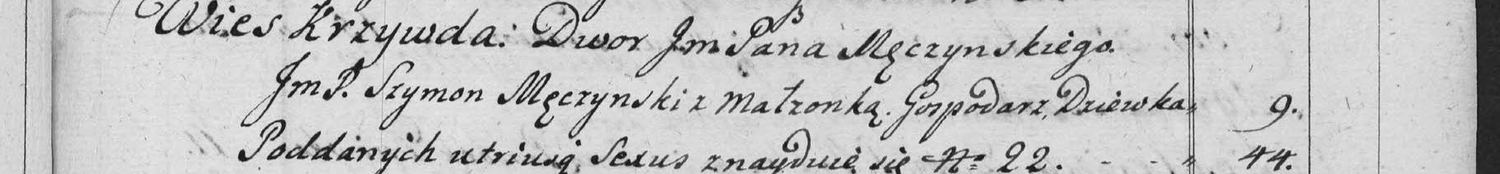 Wies Krzywda. Dwor Jm Pana Męczynskiego.
Jm P. Szymon Męczynski z Małzonką. Gospodarz, Dziewka, 9.
Poddanych utriusq Sexus znayduie się No 22. - - " 44.